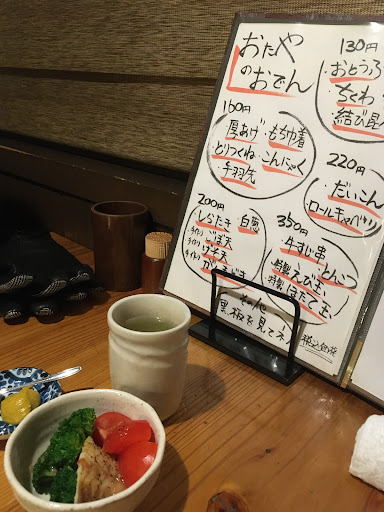 おたやのおでん
130円
おとうふ
ちくわ
結び昆
160円
厚あげ・もち巾着
とりつくね・こんにゃく
手羽先
220円
だいこん
ロールキャベツ
200円
しらたき
ごぼ天
350円
牛すじ串
特製えび玉
特製ほたて玉
その他
黒板を見てネ!
税込価格